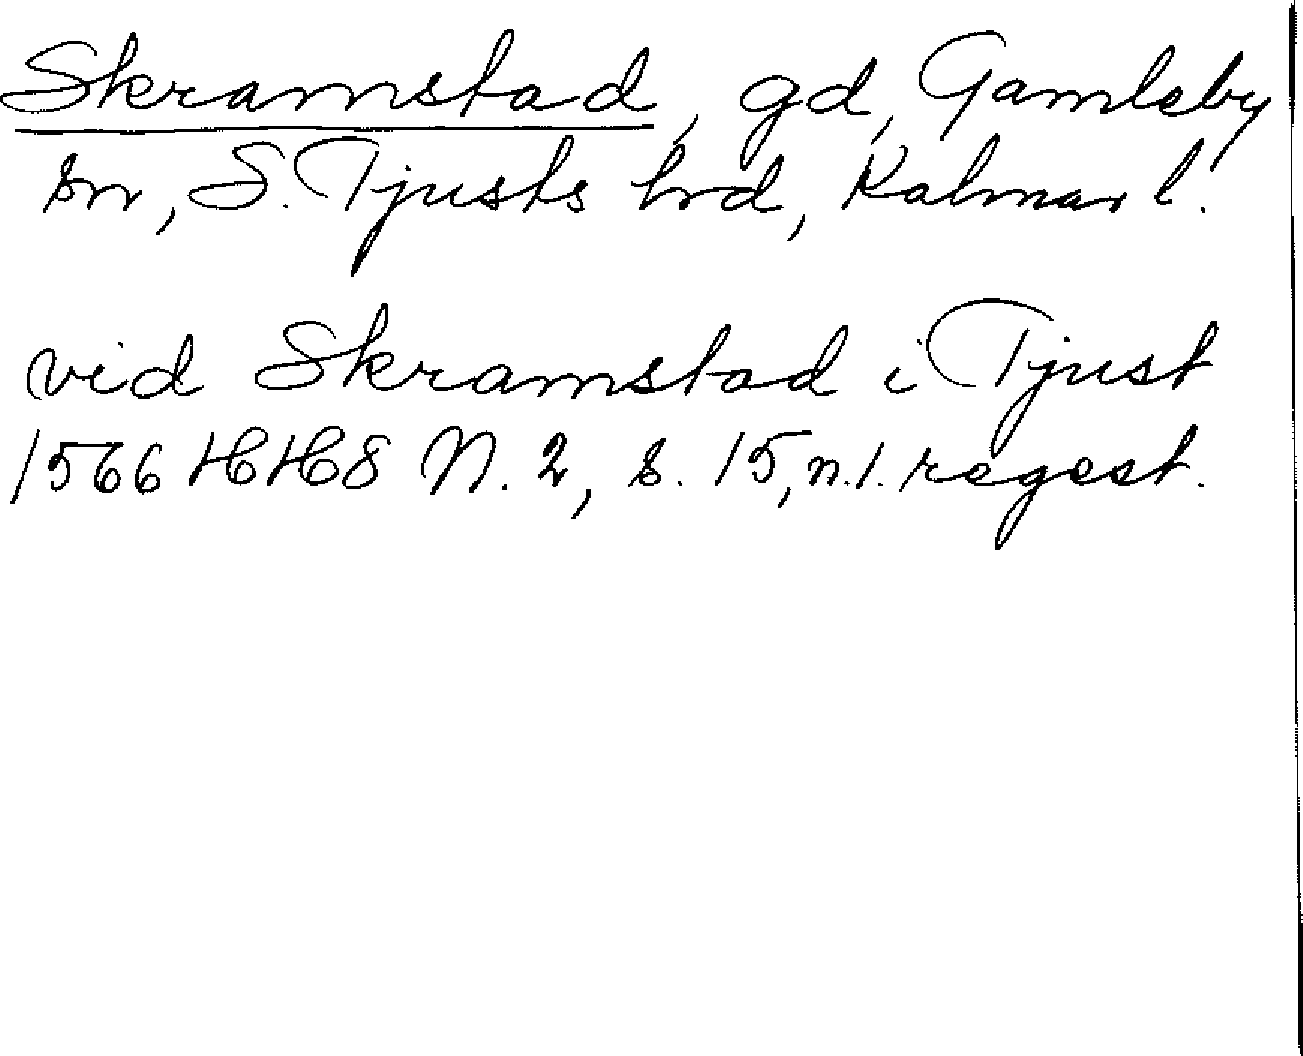 Skramstad, gd, Gamleby
sn, S. Tjusts hrd, Kalmar l.
vid Skramstad i Tjust
1566 HH8 N. 2, s. 15, n. 1. regest.